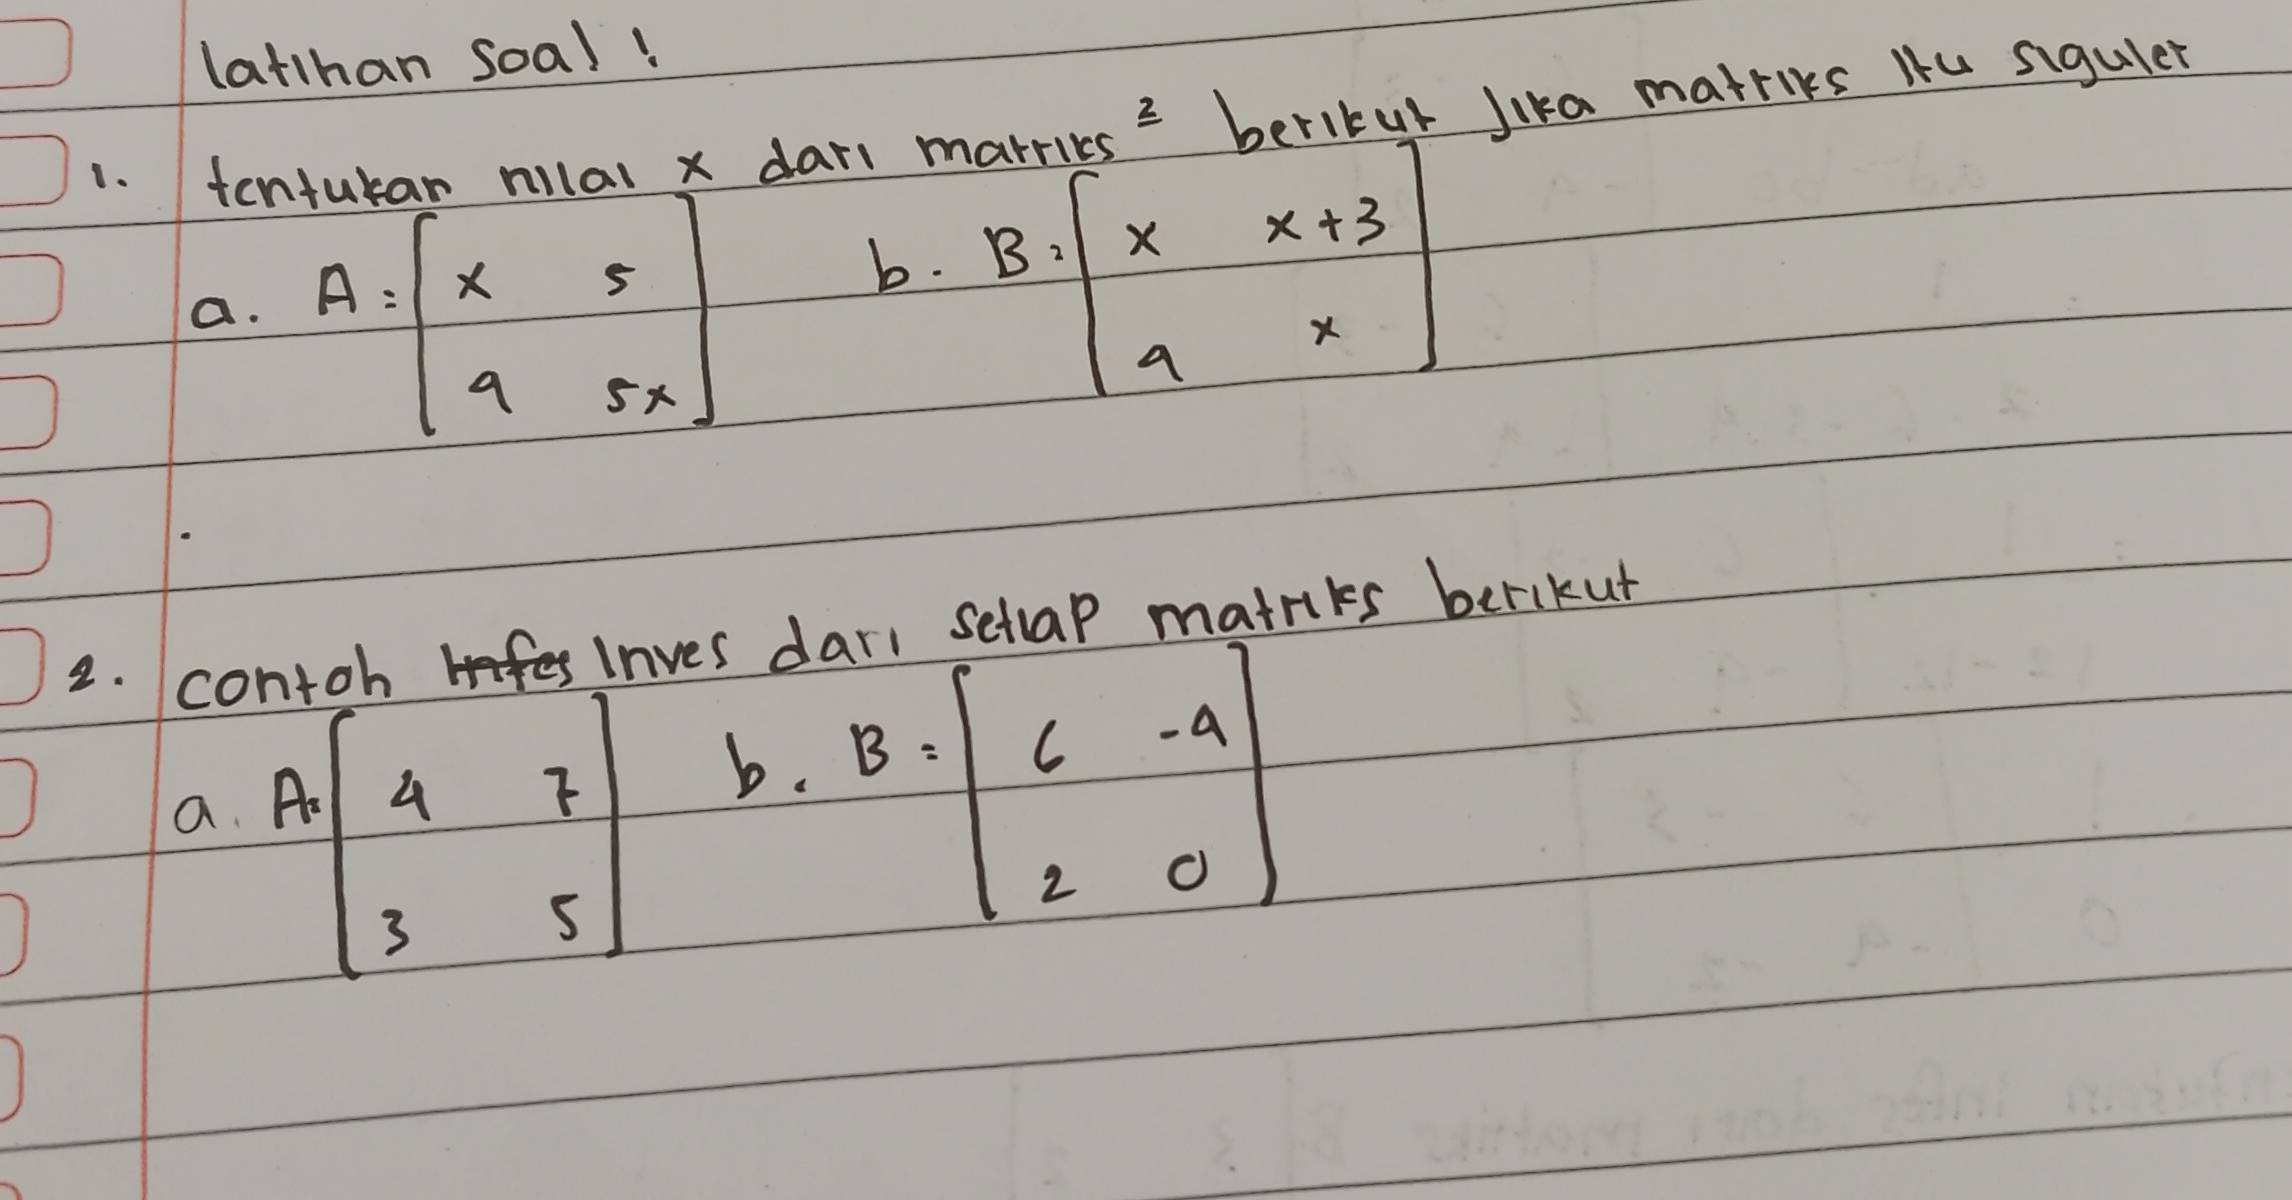 latihan soal !
1. tentukan nilai x dari matriks ² berikut jika matriks itu siguler
a. A = [ x 5 b. B = [ x x + 3 ]
9 5x ] 9 x ]
2. contoh infes inves dari setiap matriks berikut
a. A = [ 4 7 b. B = [ 6 -9
3 5 ] 2 0 ]